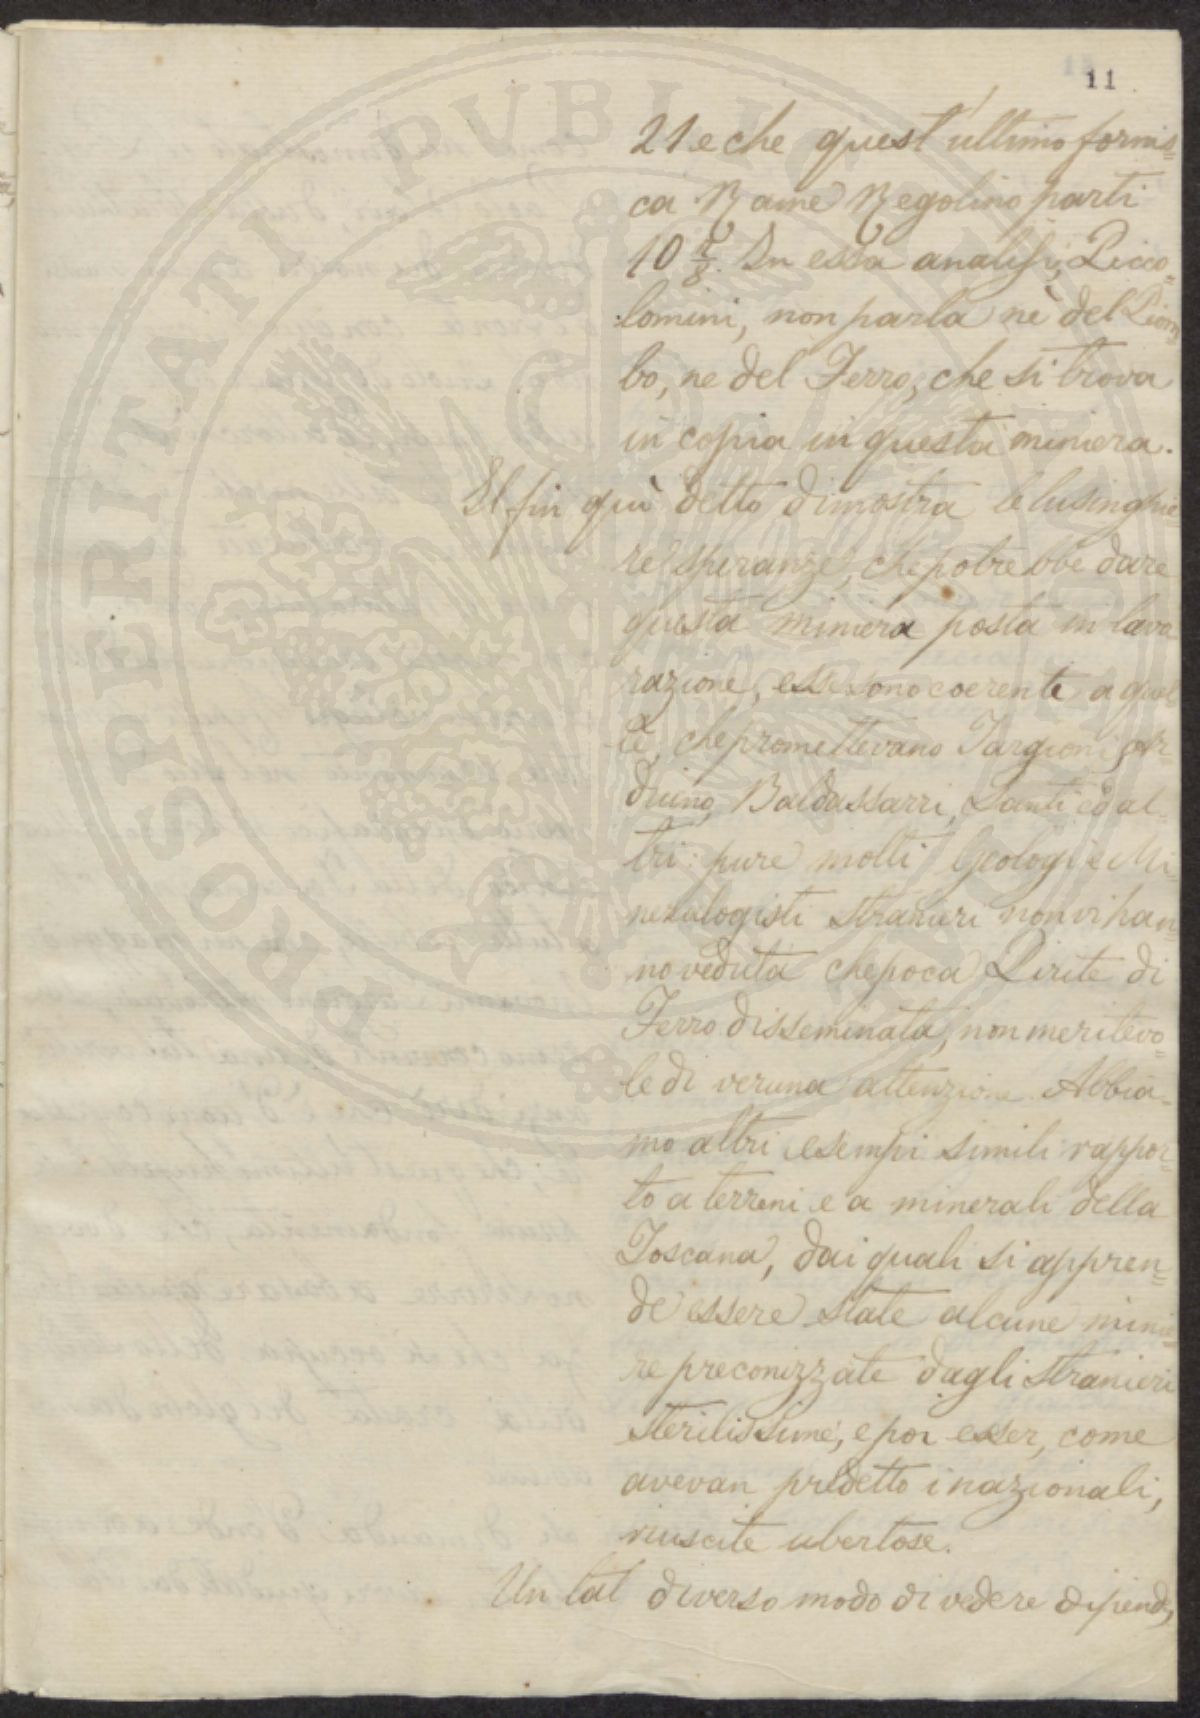 11
21 e che quest'ultimo fornis=
ca Rame Regolino parti
10 7/8. In essa analisi, Picco=
lomini, non parla nè del Piom
bo, ne del Ferro, che si trova
in copia in questa miniera.
Il fin quì detto dimostra le lusinghie=
re speranze, che potrebbe dare
questa miniera posta in lavo
razione, esse sono coerente a quel
le, che promettevano Targioni, Ar=
duino, Baldassarri, Santi ed al=
tri: pure molti Geologi e Mi=
neralogisti stranieri non vi han=
no veduta che poca Pirite di
Ferro disseminata, non meritevo=
le di veruna attenzione. Abbia=
mo altri esempi simili rappor=
to a terreni e a minerali della
Toscana, dai quali si appren=
de essere state alcune minie=
re preconizzate dagli stranieri
sterilissime, e poi esser, come
avevan predetto i nazionali,
riuscite ubertose.
Un tal diverso modo di vedere dipende,
PROSPERITATI PVBLICAE